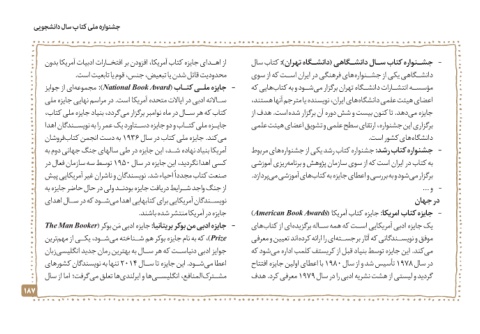 جشنواره ملی کتاب سال دانشجویی
- جشنواره کتاب سال دانشگاهی (دانشگاه تهران): کتاب سال
دانشگاهی یکی از جشنواره‌های فرهنگی در ایران است که از سوی
مؤسسه انتشارات دانشگاه تهران برگزار می‌شود و به کتاب‌هایی که
اعضای هیئت علمی دانشگاه‌های ایران، نویسنده یا مترجم آنها هستند،
جایزه می‌دهد. تا کنون بیست و شش دوره آن برگزار شده است. هدف از
برگزاری این جشنواره، ارتقای سطح علمی و تشویق اعضای هیئت علمی
دانشگاه‌های کشور است.
- جشنواره کتاب رشد: جشنواره کتاب رشد یکی از جشنواره‌های مربوط
به کتاب در ایران است که از سوی سازمان پژوهش و برنامه‌ریزی آموزشی
برگزار می‌شود و به بررسی و اعطای جایزه به کتاب‌های آموزشی می‌پردازد.
- و ...
در جهان
- جایزه کتاب امریکا: جایزه کتاب آمریکا (American Book Awards)
یک جایزه ادبی آمریکایی است که همه ساله برگزیده‌ای از کتاب‌های
موفق و نویسندگانی که آثار برجسته‌ای را ارائه کرده‌اند تعیین و معرفی
می‌کند. این جایزه توسط بنیاد قبل از کریستف کلمب اداره می‌شود که
در سال ۱۹۷۸ تأسیس شد و از سال ۱۹۸۰ با اعطای اولین جایزه افتتاح
گردید و لیستی از هشت نشریه ادبی را در سال ۱۹۷۹ معرفی کرد. هدف
از اهدای جایزه کتاب آمریکا، افزودن بر افتخارات ادبیات آمریکا بدون
محدودیت قائل شدن یا تبعیض، جنس، قوم یا تابعیت است.
- جایزه ملی کتاب (National Book Award): مجموعه‌ای از جوایز
سالانه ادبی در ایالات متحده آمریکا است. در مراسم نهایی جایزه ملی
کتاب که هر سال در ماه نوامبر برگزار می‌گردد، بنیاد جایزه ملی کتاب،
جایزه ملی کتاب و دو جایزه دستاورد یک عمر را به نویسندگان اهدا
می‌کند. جایزه ملی کتاب در سال ۱۹۳۶ به دست انجمن کتاب‌فروشان
آمریکا بنیاد نهاده شد، این جایزه در طی سالهای جنگ جهانی دوم به
کسی اهدا نگردید، این جایزه در سال ۱۹۵۰ توسط سه سازمان فعال در
صنعت کتاب مجدداً احیاء شد. نویسندگان و ناشران غیر آمریکایی پیش
از جنگ واجد شرایط دریافت جایزه بودند ولی در حال حاضر جایزه به
نویسندگان آمریکایی برای کتابهایی اهدا می‌شود که در سال اهدای
جایزه در آمریکا منتشر شده باشند.
- جایزه ادبی من بوکر بریتانیا: جایزه ادبی مَن بوکر (The Man Booker
Prize)، که به نام جایزه بوکر هم شناخته می‌شود، یکی از مهم‌ترین
جوایز ادبی دنیاست که هر سال به بهترین رمان جدید انگلیسی‌زبان
اعطا می‌شود. این جایزه تا سال ۲۰۱۴ تنها به نویسندگان کشورهای
مشترک‌المنافع، انگلیسی‌ها و ایرلندی‌ها تعلق می‌گرفت؛ اما از سال
۱۸۷